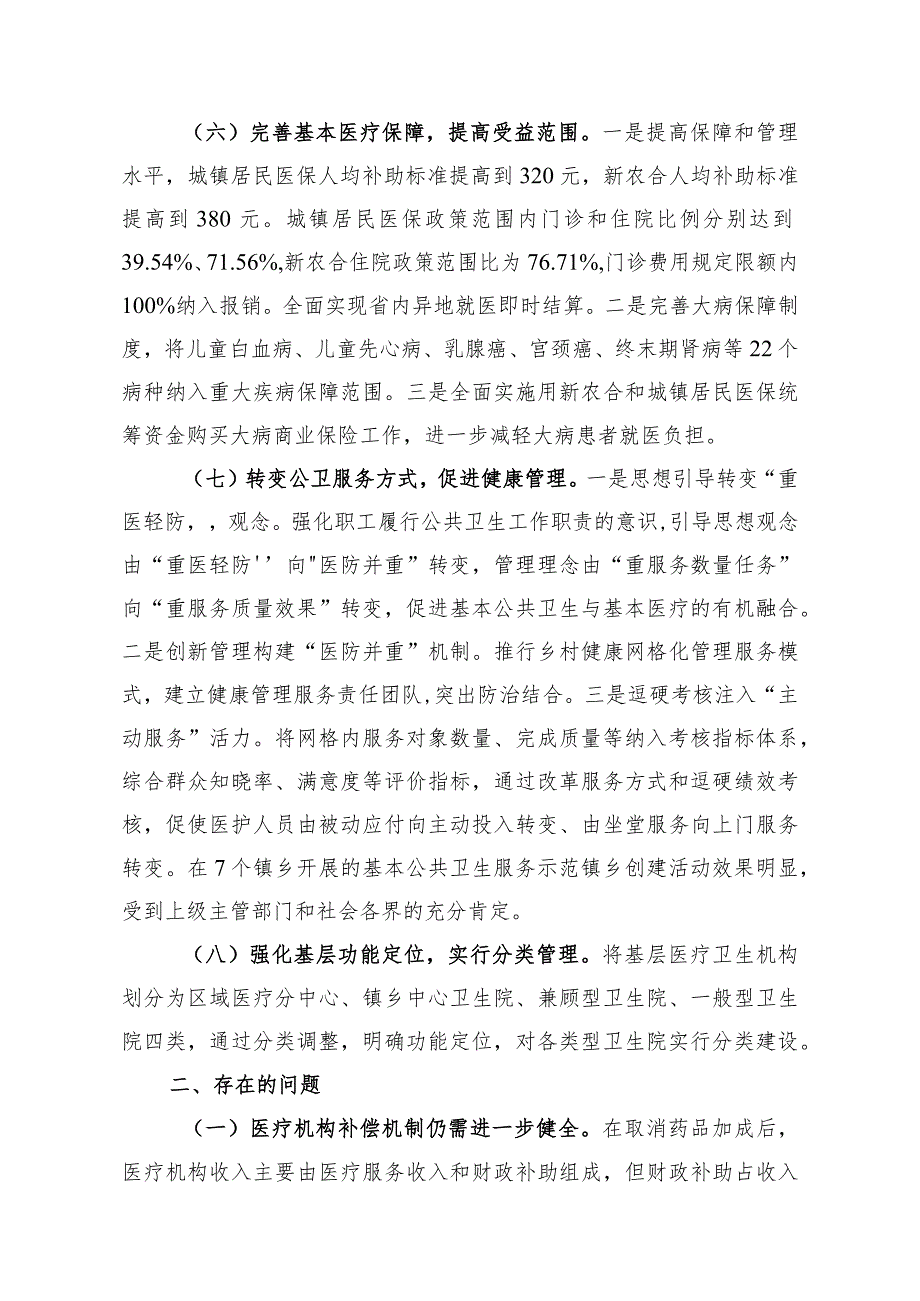 （六）完善基本医疗保障，提高受益范围。一是提高保障和管理
水平，城镇居民医保人均补助标准提高到 320 元，新农合人均补助标准
提高到 380 元。城镇居民医保政策范围内门诊和住院比例分别达到
39.54%、71.56%,新农合住院政策范围比为 76.71%,门诊费用规定限额内
100%纳入报销。全面实现省内异地就医即时结算。二是完善大病保障制
度，将儿童白血病、儿童先心病、乳腺癌、宫颈癌、终末期肾病等 22 个
病种纳入重大疾病保障范围。三是全面实施用新农合和城镇居民医保统
筹资金购买大病商业保险工作，进一步减轻大病患者就医负担。
（七）转变公卫服务方式，促进健康管理。一是思想引导转变“重
医轻防，，观念。强化职工履行公共卫生工作职责的意识,引导思想观念
由“重医轻防'’向"医防并重”转变，管理理念由“重服务数量任务”
向“重服务质量效果”转变，促进基本公共卫生与基本医疗的有机融合。
二是创新管理构建“医防并重”机制。推行乡村健康网格化管理服务模
式，建立健康管理服务责任团队,突出防治结合。三是逗硬考核注入“主
动服务”活力。将网格内服务对象数量、完成质量等纳入考核指标体系，
综合群众知晓率、满意度等评价指标，通过改革服务方式和逗硬绩效考
核，促使医护人员由被动应付向主动投入转变、由坐堂服务向上门服务
转变。在 7 个镇乡开展的基本公共卫生服务示范镇乡创建活动效果明显，
受到上级主管部门和社会各界的充分肯定。
（八）强化基层功能定位，实行分类管理。将基层医疗卫生机构
划分为区域医疗分中心、镇乡中心卫生院、兼顾型卫生院、一般型卫生
院四类，通过分类调整，明确功能定位，对各类型卫生院实行分类建设。
二、存在的问题
（一）医疗机构补偿机制仍需进一步健全。在取消药品加成后，
医疗机构收入主要由医疗服务收入和财政补助组成，但财政补助占收入